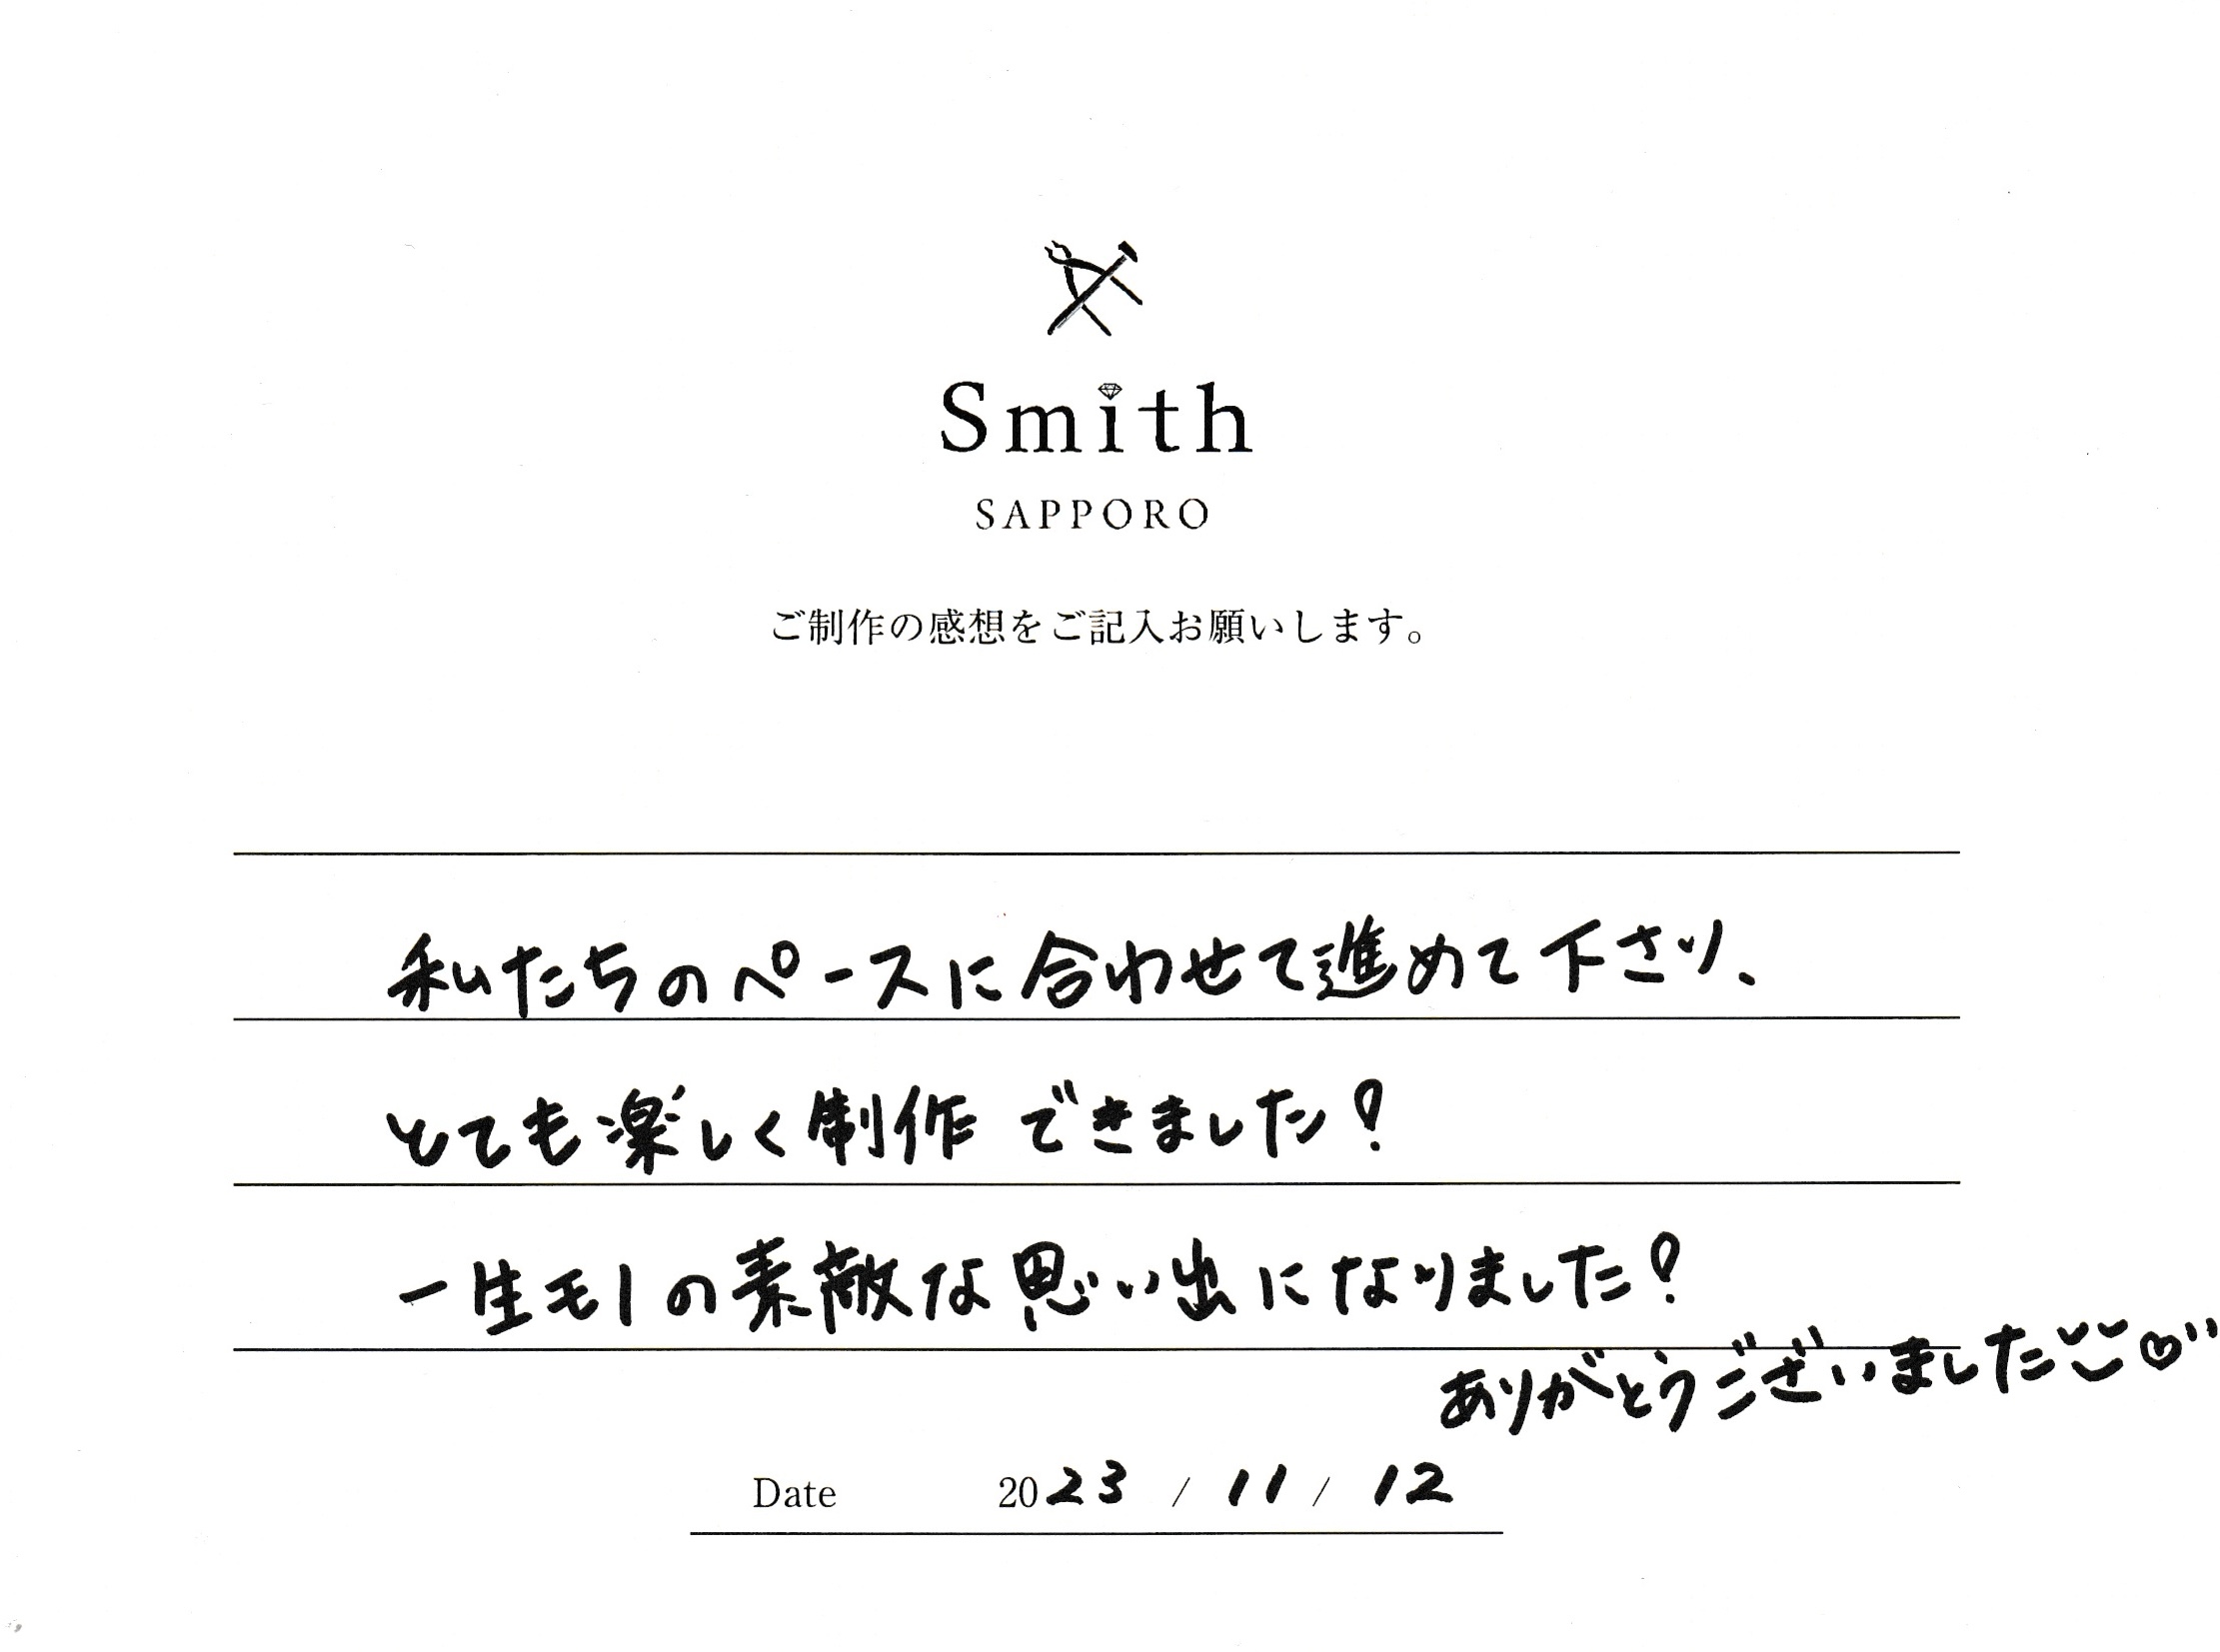 Smith
SAPPORO
ご制作の感想をご記入お願いします。
私たちのペースに合わせて進めて下さり、
とても楽しく制作できました!
一生モノの素敵な思い出になりました!
ありがとうございました
Date 2023 / 11 / 12